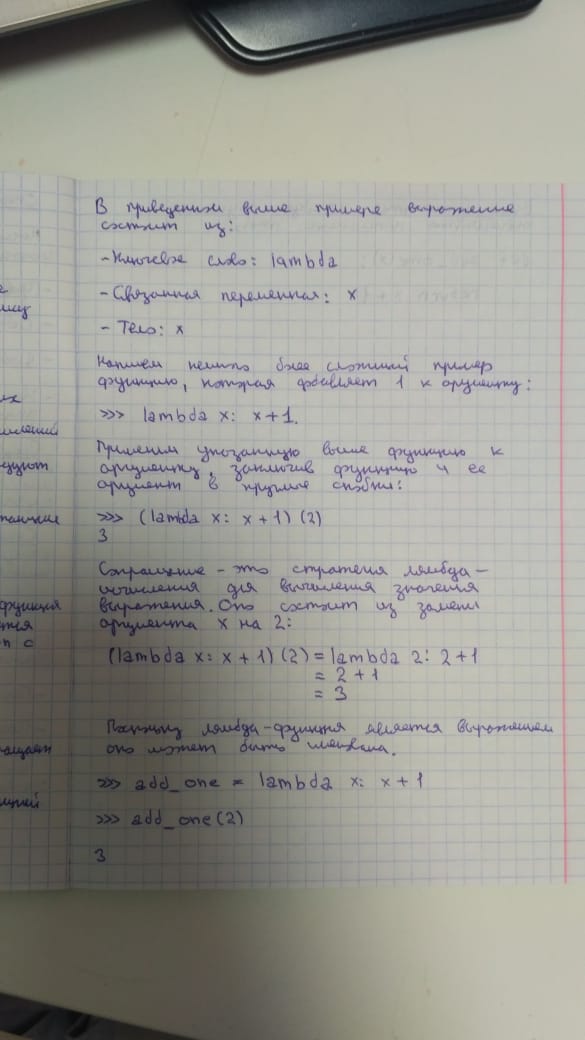 В приведенном выше примере выражение
состоит из:
- Ключевое слово: lambda
- Связанная переменная: x
- Тело: x
Напишем немного более сложный пример
функцию, которая добавляет 1 к аргументу:
>>> lambda x: x+1.
Применим указанную выше функцию к
аргументу, заключив функцию и ее
аргумент в круглые скобки:
>>> (lambda x: x+1)(2)
3
Сокращение - это стратегия лямбда-
исчисления для вычисления значения
выражения. Оно состоит из замены
аргумента x на 2:
(lambda x: x+1)(2) = lambda 2: 2+1
= 2+1
= 3
Поскольку лямбда-функция является выражением
оно может быть именована.
>>> add_one = lambda x: x+1
>>> add_one(2)
3